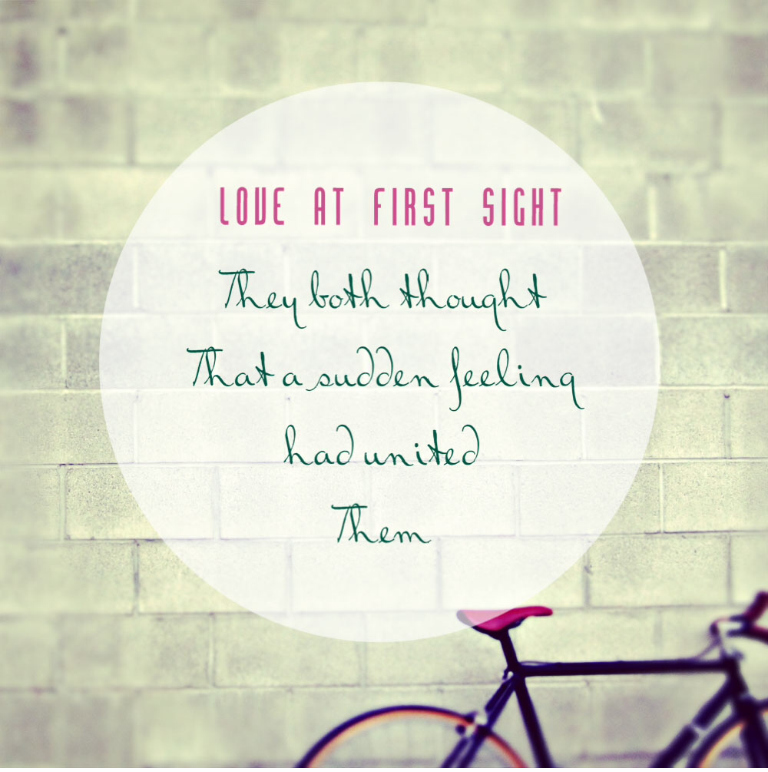 LOVE AT FIRST SIGHT
They both thought
That a sudden feeling
had united
Them